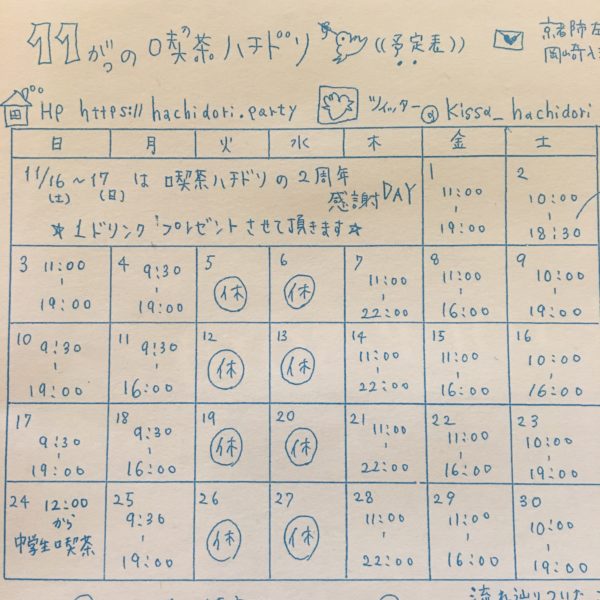 11がつの喫茶ハチドリ ((予定表))
京都市左
岡崎入
HP https://hachidori.party ツイッター@kissa_hachidori
日 月 火 水 木 金 土
11/16(土)~17(日)は喫茶ハチドリの2周年
感謝DAY
☆1ドリンクプレゼントさせて頂きます☆
1 11:00-19:00
2 10:00-18:30
3 11:00-19:00
4 9:30-19:00
5 休
6 休
7 11:00-22:00
8 11:00-16:00
9 10:00-19:00
10 9:30-19:00
11 9:30-16:00
12 休
13 休
14 11:00-22:00
15 11:00-16:00
16 10:00-16:00
17 9:30-19:00
18 9:30-16:00
19 休
20 休
21 11:00-22:00
22 11:00-16:00
23 10:00-19:00
24 12:00から中学生喫茶
25 9:30-19:00
26 休
27 休
28 11:00-22:00
29 11:00-16:00
30 10:00-19:00